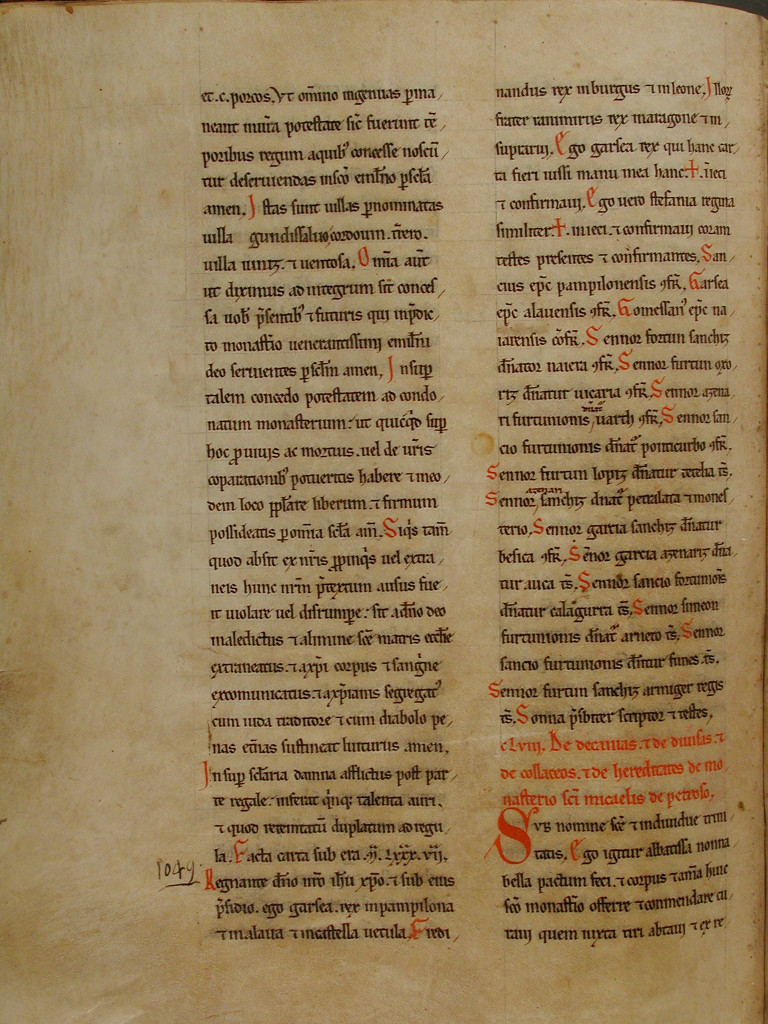 et .c. porcos. Vt om̅ino ingenuas p̲ma
neant in ur̅a potestate sic̅ fuerunt te̅
poribus regum a quib' concesse noscu̅
tur deseruiendas in sc̅o emil̅no p̲ sc̅la
amen. Istas sunt uillas p̲nominatas
uilla gundissaluo, cordouin. t̅rero.
uilla uniz. ⁊ uentosa. Om̅ia aut̅
ut diximus ad integrum sit conces
sa uob' p̅sentib' ⁊ futuris qui in p̅dic
to monast̅io uenerantissimi emil̅ni
deo seruientes p̲ sc̅lm̅ amen. Insup̲
talem concedo potestatem ad condo
natum monasterium. ut quicq̅d sup̲
hoc p̲ uiuis ac mortuis. uel de ur̅is
coparationib' potueritis habere in eo
dem loco p̲p̲l̅ate liberum. ⁊ firmum
possideatis p̲ om̅ia sc̅la am̅. Siq̅s tam̅
quod absit ex nr̅is p̲pinq̅s uel extra
neis hunc nr̅m p̅textum ausus fue
it uiolare uel disrump̲e. sit a dn̅o deo
maledictus ⁊ a limine sc̅e matris eccl̅ie
extraneatus. ⁊ a xp̅i corpus ⁊ sang̅ne
excomunicatus. ⁊ a xp̅ianis segregat'
cum iuda traditore ⁊ cum diabolo pe
nas et̅nas sustineat luiturus amen.
Insup̲ sc̅laria damna afflictus post par
te regale. inferat q̅nq; talenta auri.
⁊ quod retemtatu̅ duplatum ad regu
la. Facta carta sub era .M̅. LXXX. VII.
1049
Regnante dn̅o nr̅o ih̅u xp̅o. ⁊ sub eius
p̅sidio. ego garsea. rex in pampilona
⁊ in alaua ⁊ in castella uetula. Fredi
nandus rex in burgus ⁊ in leone. Illor̅
frater ranimirus rex in aragone ⁊ in
suprarui. Ego garsea rex qui hanc car
ta fieri iussi manu mea hanc ✝. inieci
⁊ confirmaui. Ego uero stefania regina
similiter ✝. inieci. ⁊ confirmaui coram
testes presentes ⁊ confirmantes. San
cius ep̅c pampilonensis ↄfr̅. Garsea
ep̅c alauensis ↄfr̅. Gomessan' ep̅c na
iarensis co̅fr̅. Sennor fortun sanchiz
dn̅ator naiera ↄfr̅. Sennor furtun oxo
riz dn̅atur uicaria ↄfr̅. Sennor azena
ri furtunionis dn̅at' uarch ↄfr̅. Sennor san
cio furtunionis dn̅at' ponticurbo ↄfr̅.
Sennor furtun lopiz dn̅atur tetelia ts̅.
Sennor azenari sanchiz dn̅at' petralata ⁊ mones
terio. Sennor garcia sanchiz dn̅atur
besica ↄfr̅. Sen̅or garcia azenariz dn̅a
tur auca ts̅. Sennor sancio fortunio̅is
dn̅atur calagurra ts̅. Sennor simeon
furtunionis dn̅at' arneto ts̅. Sennor
sancio furtunionis dn̅tur funes ts̅.
Sennor furtun sanchiz armiger regis
ts̅. Sonna p̅sbiter scriptor ⁊ testes.
CLVIII. De decanias. ⁊ de diuisas. ⁊
de collaceos. ⁊ de hereditates de mo
nasterio sc̅i micaelis de petroso.
Sub nomine sc̅e ⁊ indiuidue trini
tatis. Ego igitur abbatissa nonna
bella pactum feci. ⁊ corpus ⁊ an̅ia huic
sc̅o monast̅io offerre ⁊ commendare cu
raui quem iuxta tiri abtaui ⁊ ex re